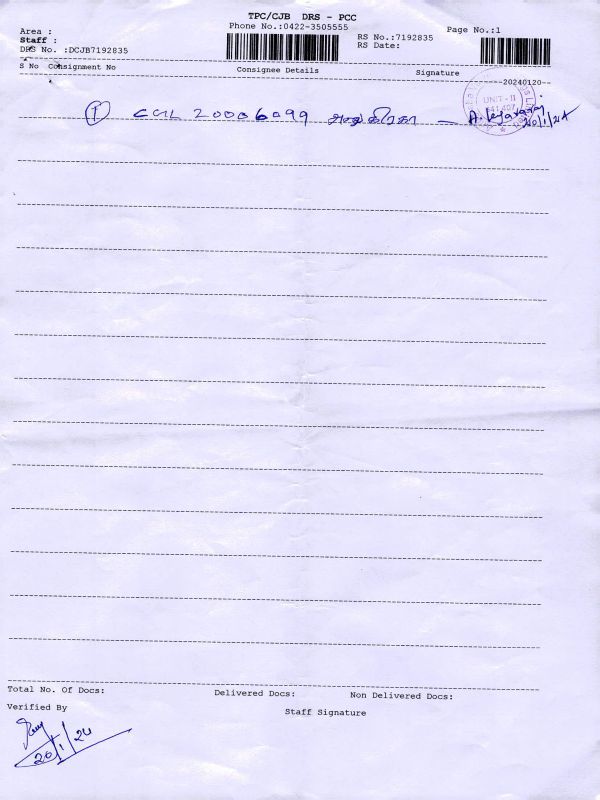 TPC/CJB DRS - PCC
Phone No.:0422-3505555
Area :
Staff :
DRS No. :DCJB7192835
RS No.:7192835
RS Date:
Page No.:1
S No Consignment No Consignee Details Signature
20240120
UNIT - II
641 407
① CGL 20006099 — A.
20/1/24
Total No. Of Docs: Delivered Docs: Non Delivered Docs:
Verified By Staff Signature
20/1/24